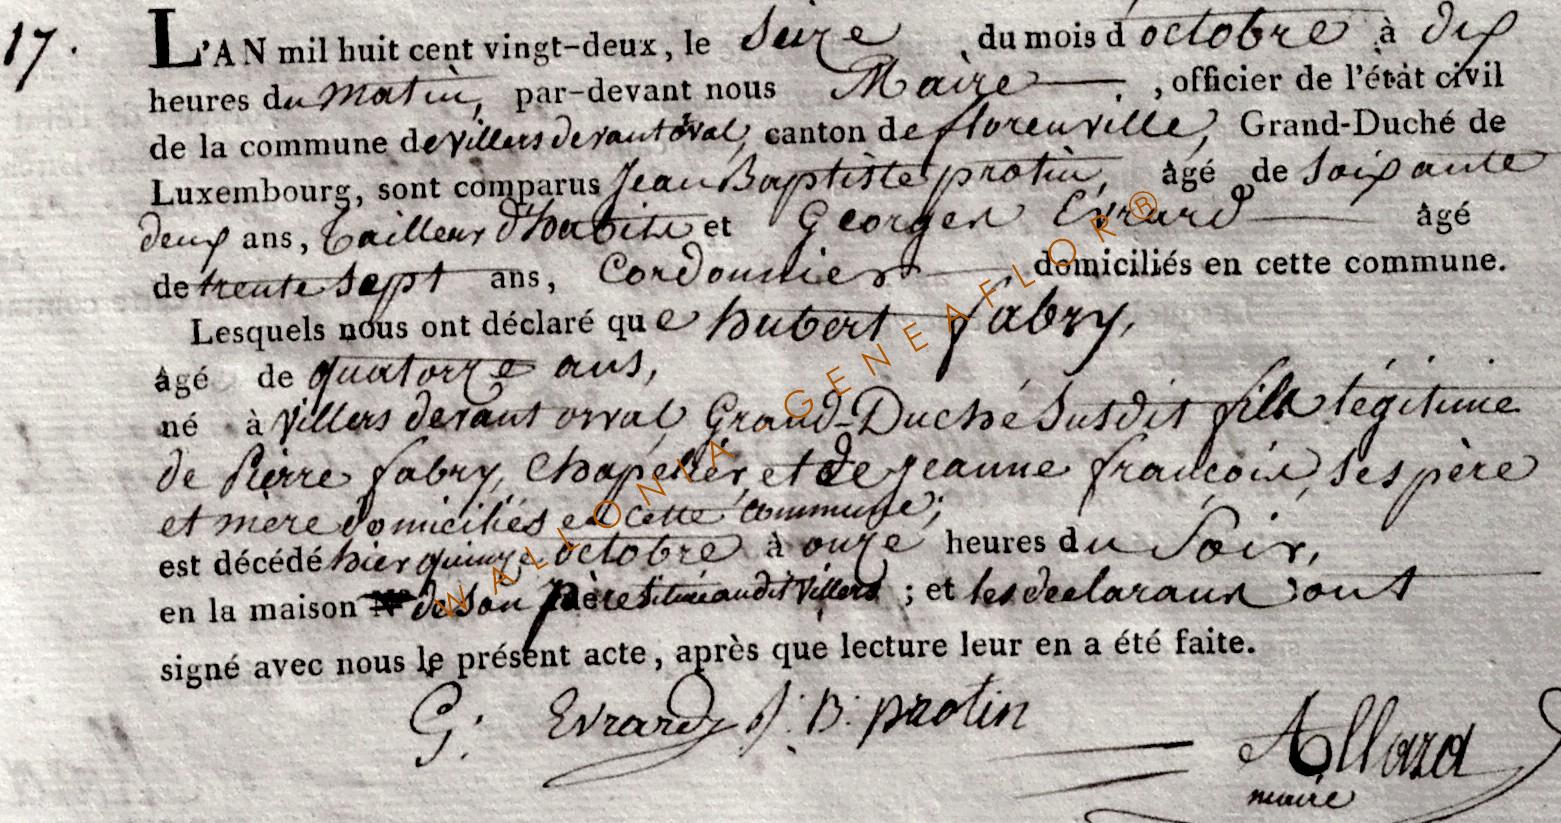 17.
L'AN mil huit cent vingt-deux, le Seize du mois d'octobre à dix
heures du matin, par-devant nous Maire, officier de l'état civil
de la commune de villers devant orval, canton de florenville, Grand-Duché de
Luxembourg, sont comparus Jean Baptiste protin, âgé de Soixante
deux ans, tailleur d'habits et Georges Evrard âgé
de trente sept ans, Cordonnier, domiciliés en cette commune.
Lesquels nous ont déclaré que hubert fabry,
âgé de quatorze ans,
né à villers devant orval, Grand-Duché susdit fils légitime
de Pierre fabry, Chapelier, et de jeanne françois, ses père
et mère domiciliés en cette commune;
est décédé hier quinze octobre à onze heures du Soir,
en la maison de son père située audit villers ; et les declarans ont
signé avec nous le présent acte, après que lecture leur en a été faite.
G: Evrard J: B: protin
Allard
maire
WALLONIA GENEAFLOR®